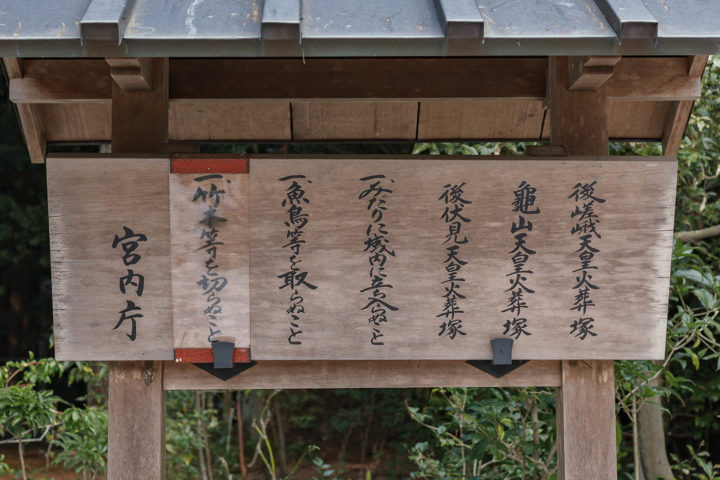 後嵯峨天皇火葬塚
龜山天皇火葬塚
後伏見天皇火葬塚
一、みだりに域内に立ち入らぬこと
一、魚鳥等を取らぬこと
一、竹木等を切らぬこと
宮内庁